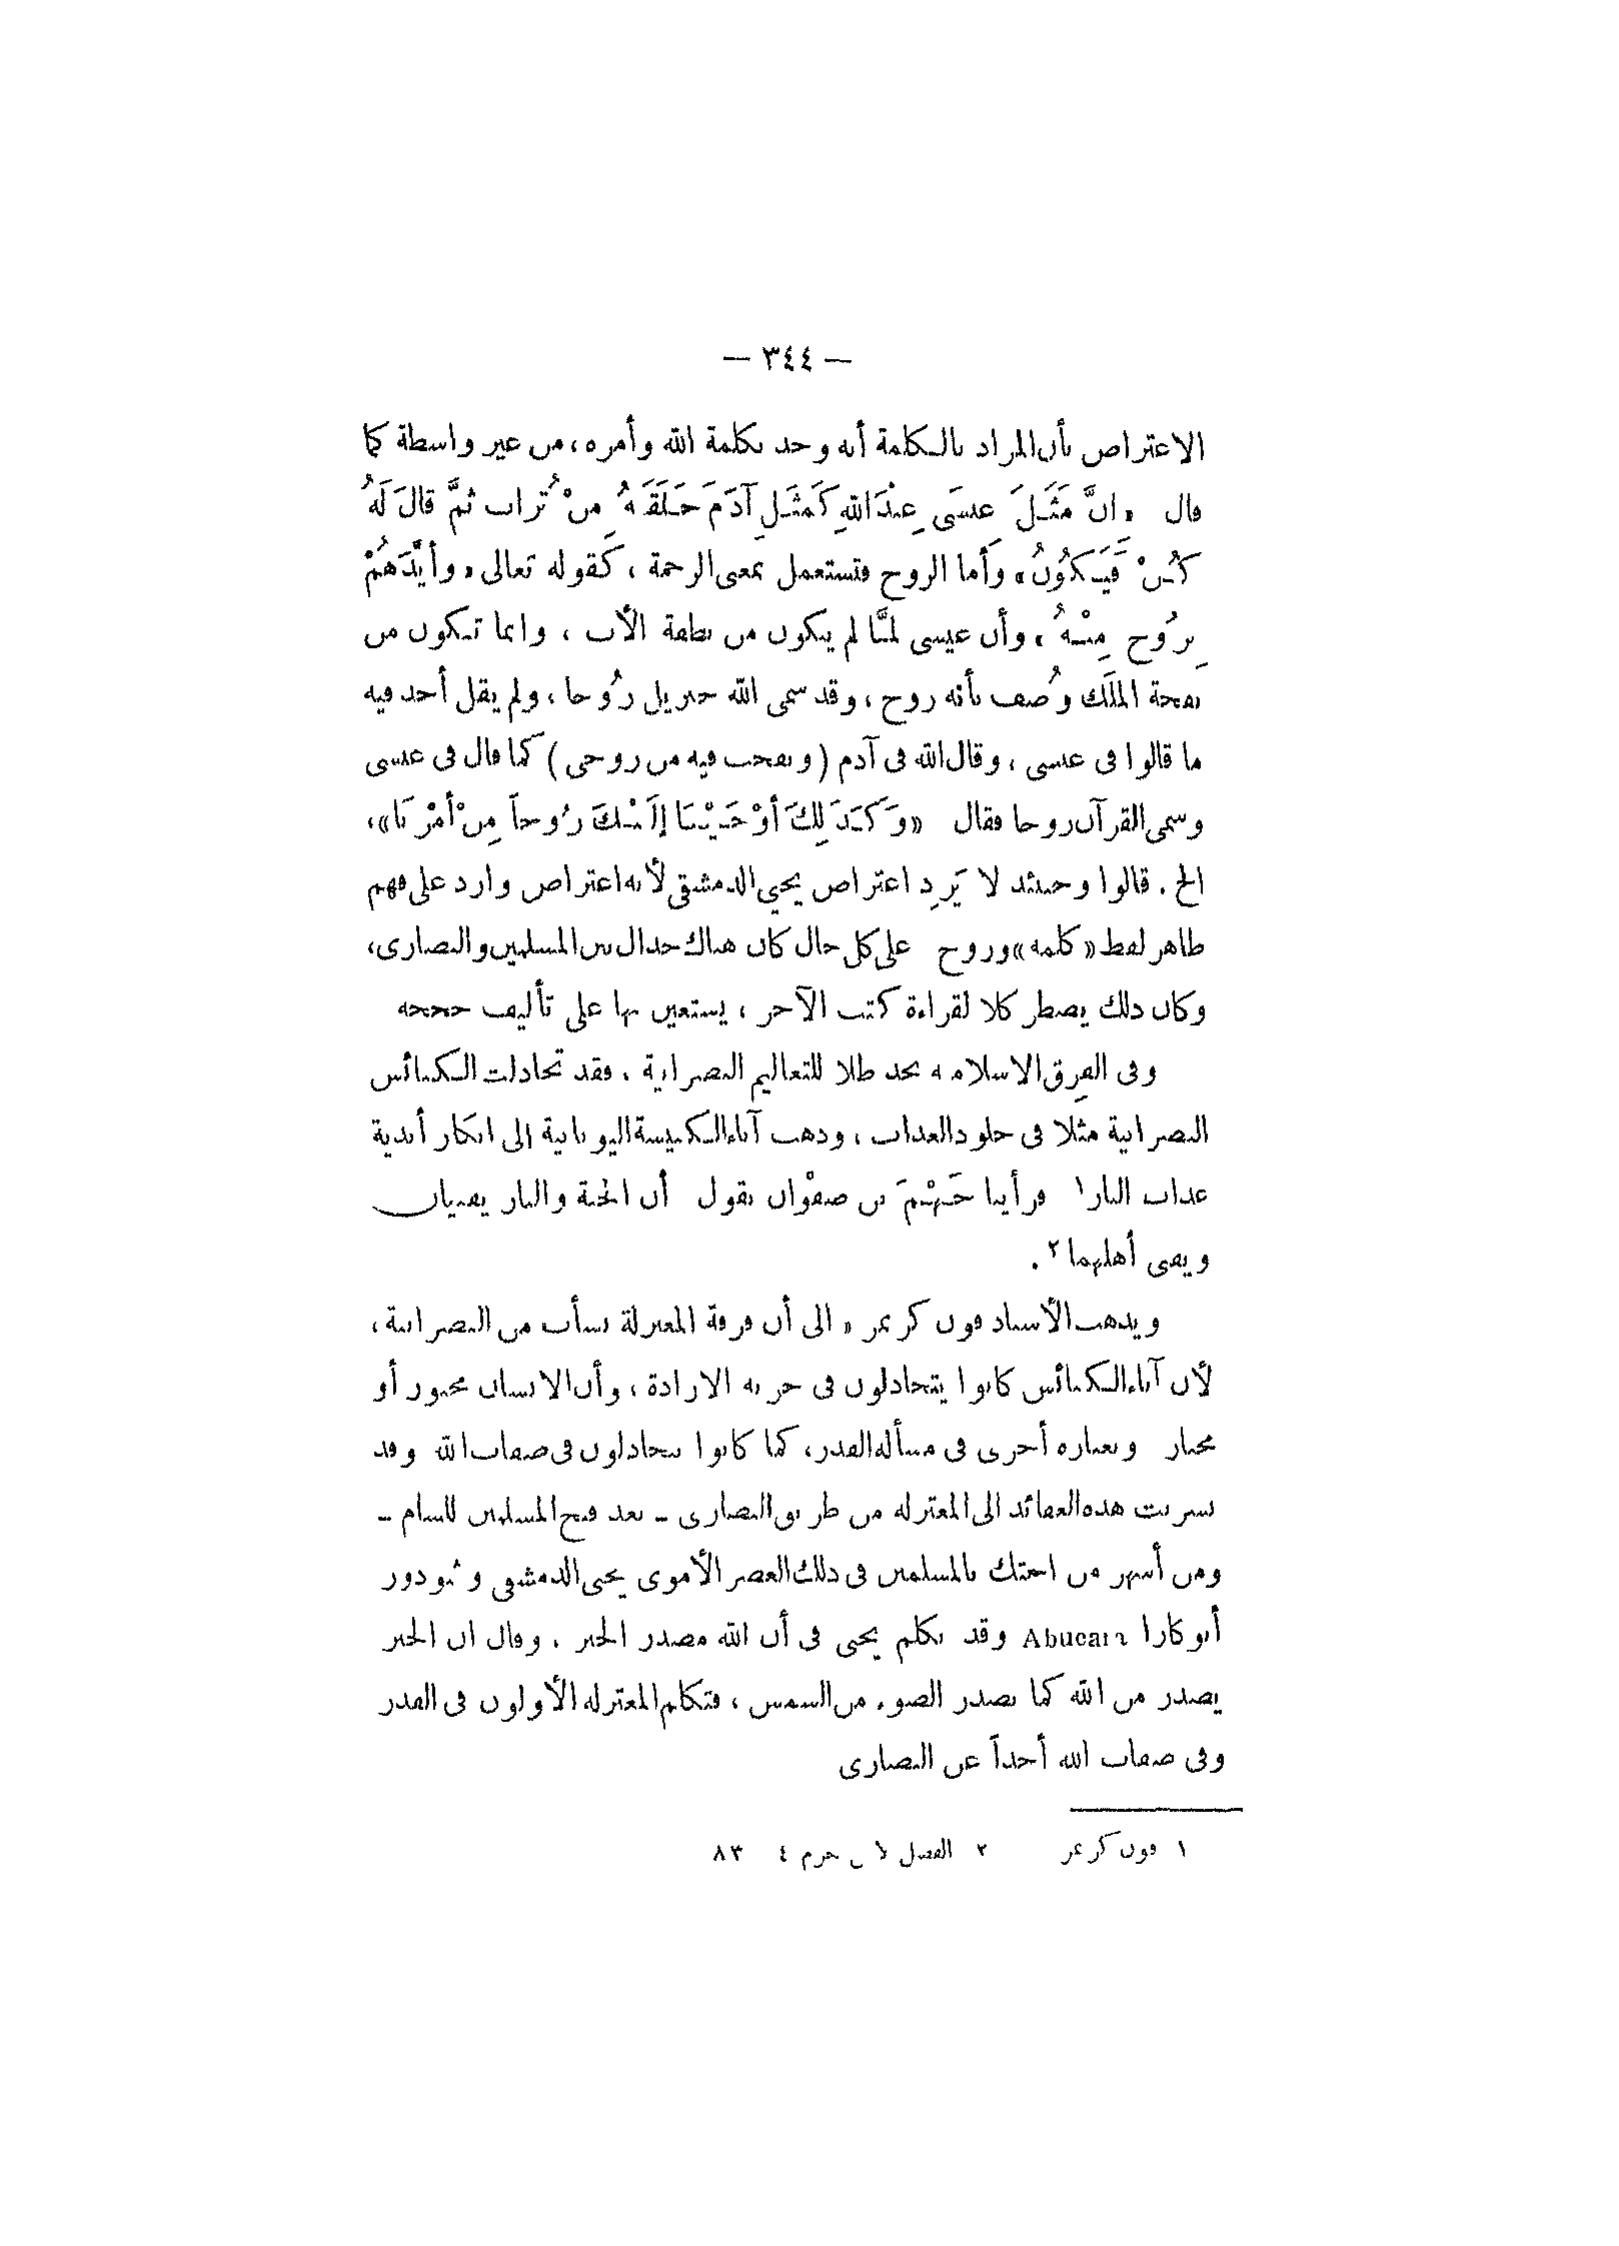 — ٣٤٤ —
الاعتراض بأن المراد بالكلمة أنه وجد بكلمة الله وأمره، من غير واسطة كما
قال « انَّ مَثَلَ عيسَى عِنْدَ اللهِ كَمَثَلِ آدَمَ خَلَقَهُ مِنْ تُراب ثمَّ قالَ لَهُ
كُنْ فَيَكُونُ» وأما الروح فتستعمل بمعنى الرحمة ، كقوله تعالى « وأيَّدَهُمْ
بِرُوح مِنْهُ ، وأن عيسى لمَّا لم يتكون من نطفة الأب ، وانما تكون من
نفخة الملَك وُصف بأنه روح ، وقد سمى الله جبريل رُوحا ، ولم يقل أحد فيه
ما قالوا فى عيسى ، وقال الله فى آدم ( ونفخت فيه من روحى ) كما قال فى عيسى
وسمى القرآن روحا فقال «وَكَذَلِكَ أوْحَيْنَا إلَيْكَ رُوحاً مِنْ أمْرنَا»،
الخ . قالوا وحينئذ لا يَرِد اعتراض يحيي الدمشقى لأنه اعتراض وارد على فهم
ظاهر لفظ « كلمة » وروح على كل حال كان هناك جدال بين المسلمين والنصارى،
وكان ذلك يضطر كلا لقراءة كتب الآخر ، يستعين بها على تأليف حججه
وفى الفِرق الاسلامية نجد ظلا للتعاليم النصرانية . فقد تجادلت الكنائس
النصرانية مثلا فى خلود العذاب ، وذهب آباء الكنيسة اليونانية الى انكار أبدية
عذاب النار١ فرأينا جَهْمَ بن صفْوان يقول أن الجنة والنار يفنيان
ويفنى أهلهما٢ .
ويذهب الأستاذ فون كريمر « الى أن فرقة المعتزلة نشأت من النصرانية ،
لأن آباء الكنائس كانوا يتجادلون فى حرية الارادة ، وأن الانسان مجبور أو
مختار وبعبارة أخرى فى مسألة القدر، كما كانوا يتجادلون فى صفات الله وقد
تسربت هذه العقائد الى المعتزلة من طريق النصارى – بعد فتح المسلمين للشام –
ومن أشهر من احتك بالمسلمين فى ذلك العصر الأموى يحيى الدمشقى وثيودور
أبو كارا Abucara وقد تكلم يحيى فى أن الله مصدر الخير . وقال ان الخير
يصدر من الله كما يصدر الضوء من الشمس ، فتكلم المعتزلة الأولون فى القدر
وفى صفات الله أخذاً عن النصارى
١ فون كريمر ٢ الفصل لابن حزم ٤ ٨٣